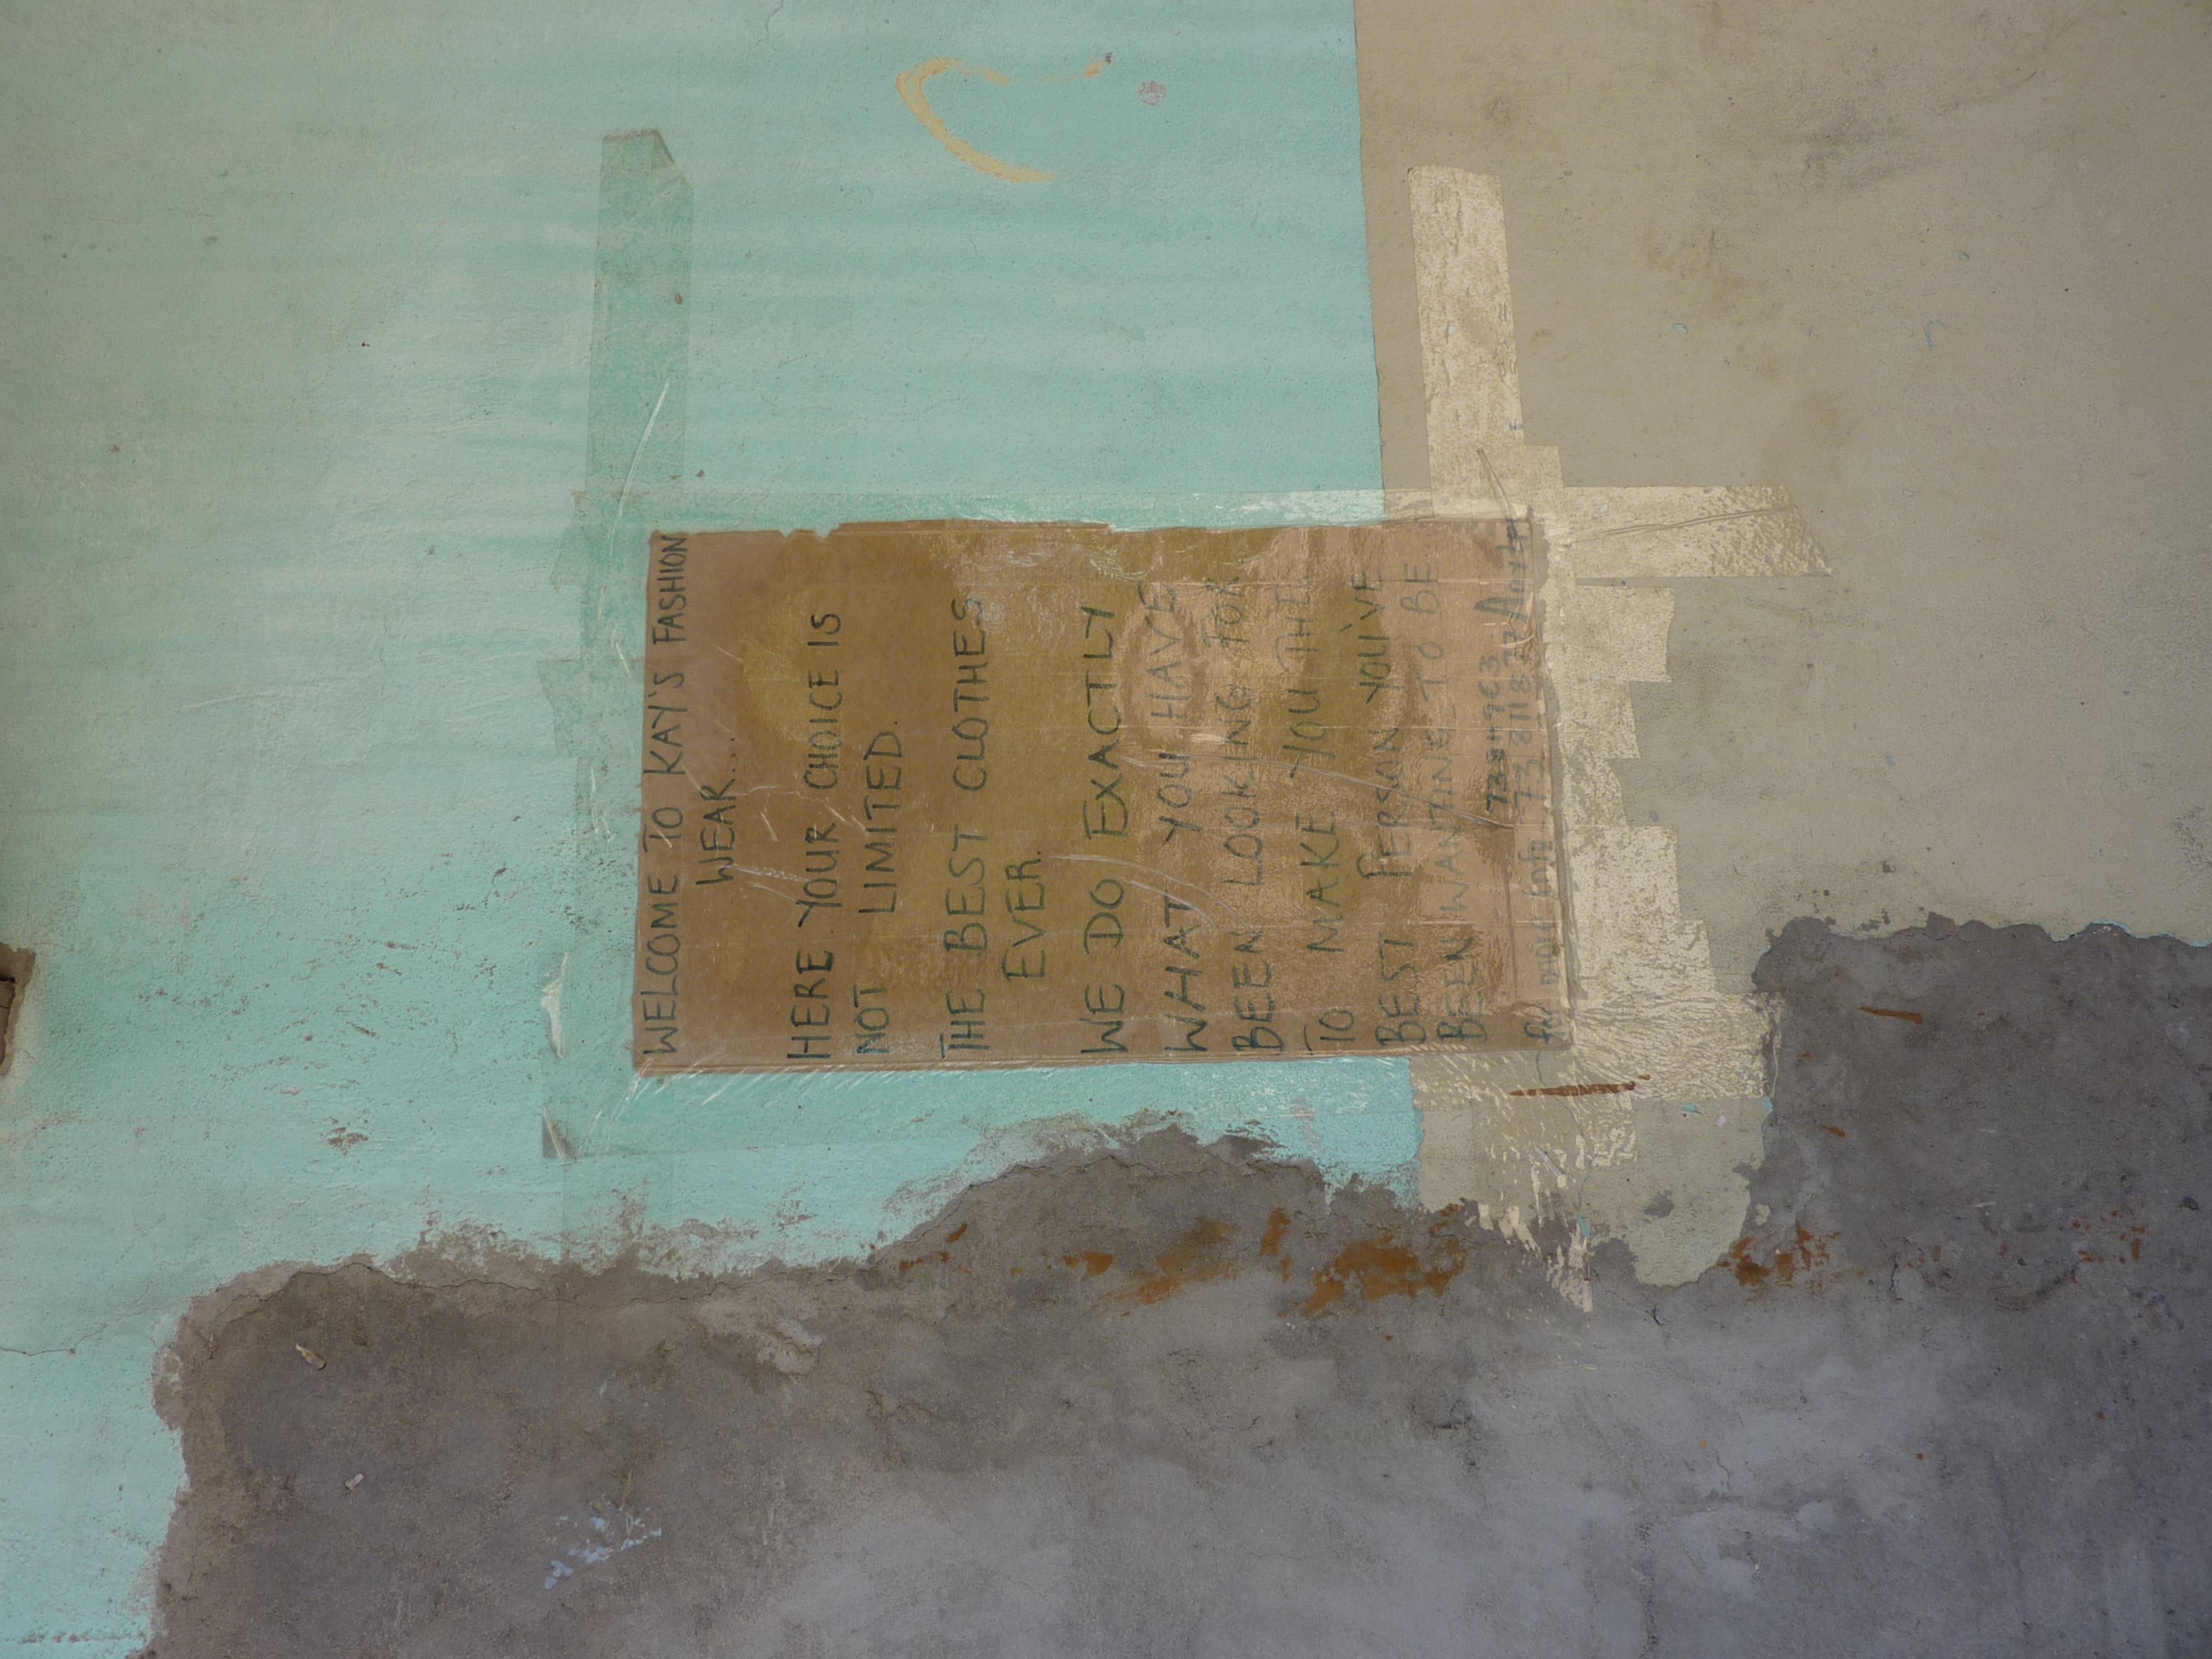 WELCOME TO KAY'S FASHION
WEAR...
HERE YOUR CHOICE IS
NOT LIMITED.
THE BEST CLOTHES
EVER.
WE DO EXACTLY
WHAT YOU HAVE
BEEN LOOKING FOR
TO MAKE YOU THE
BEST PERSON YOU'VE
BEEN WANTING TO BE